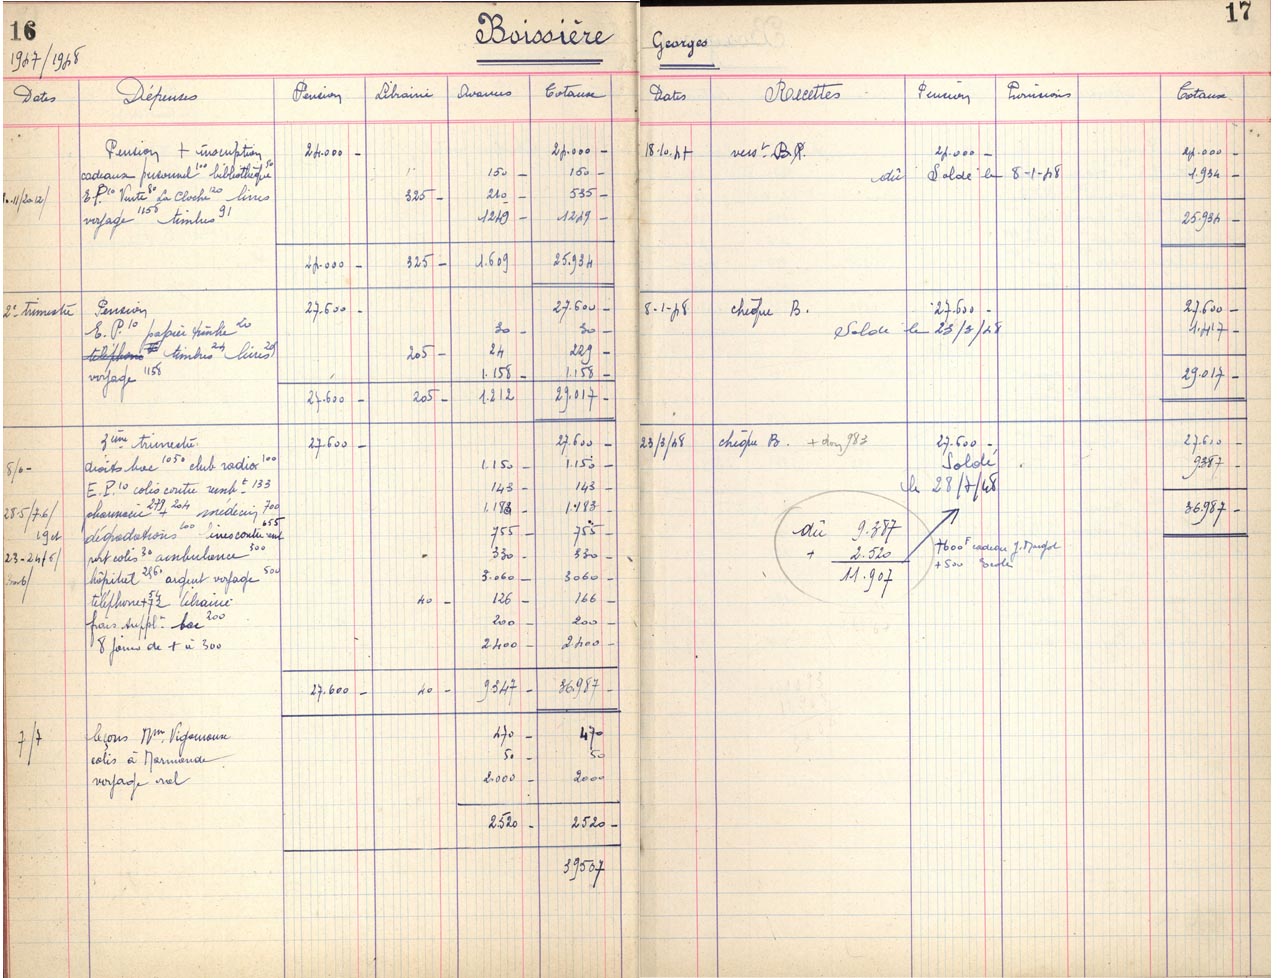 16
1947/1948
Boissière
Dates Dépenses Pension Librairie Avances Totaux
Pension + inscription 24.000 - 24.000 -
cadeaux personnel 100 bibliothèque 50 150 - 150 -
E.P. 10 Vente 80 La Cloche 120 livres 325 - 210 - 535 -
voyage 1158 timbres 91 1249 - 1249 -
24.000 - 325 - 1.609 - 25.934
2e trimestre Pension 27.600 - 27.600 -
E.P. 10 papier timbre 20 30 - 30 -
téléphone timbres 24 livres 205 205 - 24 229 -
voyage 1158 1.158 - 1.158 -
27.600 - 205 - 1.212 29.017 -
3ème trimestre 27.600 - 27.600 -
droits bac 1050 club radio 100 1.150 - 1.150 -
E.P. 10 colis contre rembt 133 143 - 143 -
28-5/7-6/ pharmacie 279 + 204 médecin 700 1.183 - 1.183 -
dégradations 100 livres contre rembt 655 755 - 755 -
port colis 30 ambulance 300 330 - 330 -
hôpital 2560 argent voyage 500 3.060 - 3060 -
téléphone 54 + 72 librairie 40 - 126 - 166 -
frais supplt bac 200 200 - 200 -
8 jours de + à 300 2400 - 2400 -
27.600 - 40 - 9347 - 36.987 -
7/7 leçons Mm. Vigouroux 470 - 470
colis à Marmande 50 - 50
voyage 2.000 - 2000
2520 - 2520 -
39507
17
Georges
Dates Recettes Pension Provisions Totaux
18.10.47 verst B.P. 24.000 - 24.000 -
dû Soldé le 8-1-48 1.934 -
25.934 -
8-1-48 chèque B. 27.600 - 27.600 -
Soldé le 23/3/48 1.417 -
29.017 -
23/3/48 chèque B. + don 983 27.600 - 27.600 -
Soldé 9387 -
le 28/7/48
36.987 -
dû 9.387
+ 2.520
+600F cadeau
+500
11.907